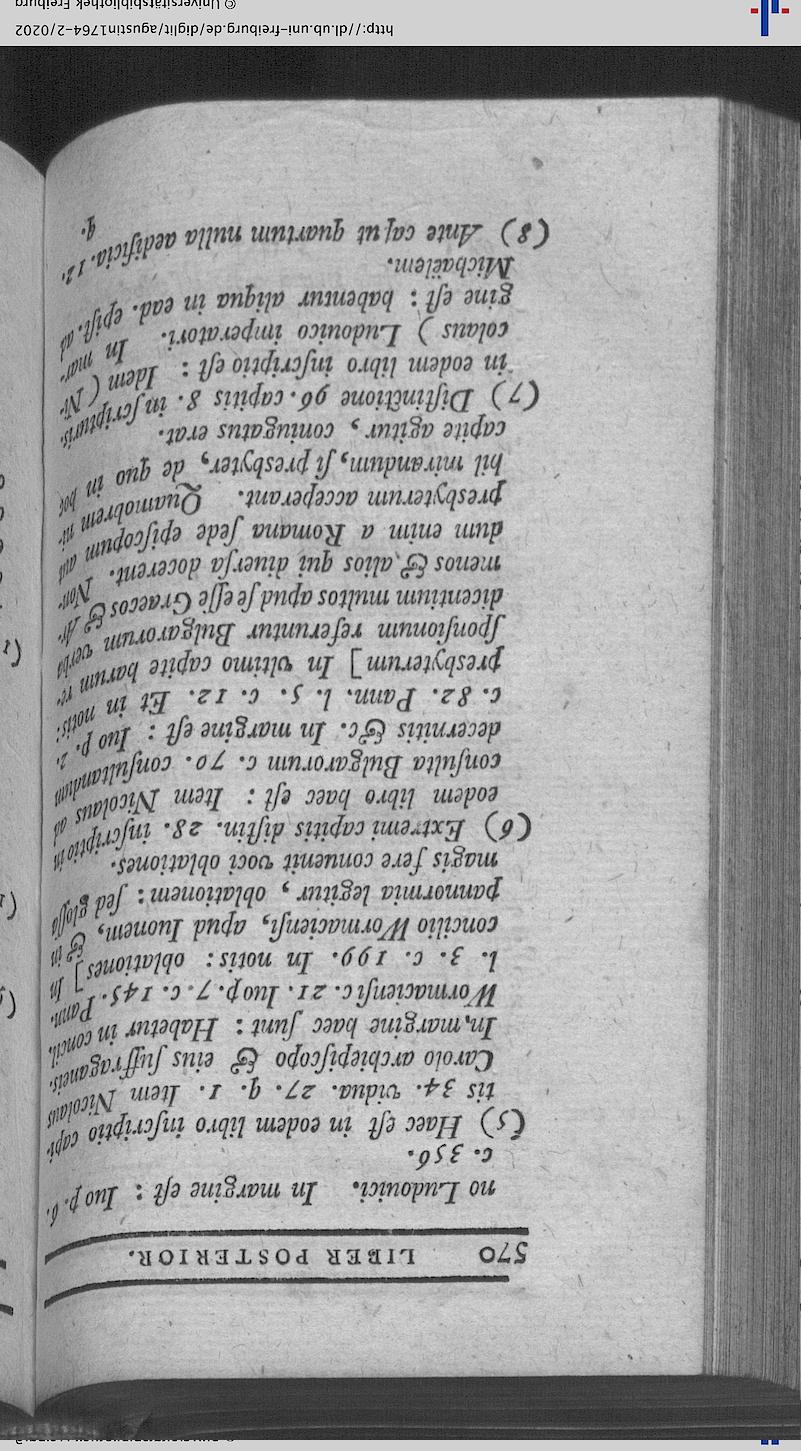 570 LIBER POSTERIOR.
no Ludouici. In margine eſt: Iuo p. 6.
c. 356.
(5) Haec eſt in eodem libro inſcriptio capi-
tis 34. vidua. 27. q. 1. Item Nicolaus
Carolo archiepiſcopo & eius ſuffraganeis.
In margine haec ſunt: Habetur in concil.
Wormacienſi c. 21. Iuo p. 7. c. 145. Pann.
l. 3. c. 199. In notis: oblationes] In
concilio Wormacienſi, apud Iuonem, & in
pannormia legitur, oblationem: ſed gloſſa
magis fere conuenit voci oblationes.
(6) Extremi capitis diſtin. 28. inſcriptio in
eodem libro haec eſt: Item Nicolaus ad
conſulta Bulgarorum c. 70. conſultandum
decernitis &c. In margine eſt: Iuo p. 2.
c. 82. Pann. l. 5. c. 12. Et in notis:
presbyterum] In vltimo capite harum re-
ſponſionum referuntur Bulgarorum verba
dicentium multos apud ſe eſſe Graecos & Ar-
menos & alios qui diuerſa docerent. Non-
dum enim a Romana ſede epiſcopum aut
presbyterum acceperant. Quamobrem ni-
hil mirandum, ſi presbyter, de quo in hoc
capite agitur, coniugatus erat.
(7) Diſtinctione 96. capitis 8. in ſcripturis.
in eodem libro inſcriptio eſt: Idem (Ni-
colaus) Ludouico imperatori. In mar-
gine eſt: habentur aliqua in ead. epiſt. ad
Michaëlem.
(8) Ante caput quartum nulla aedificia. 12.
q.
http://dl.ub.uni-freiburg.de/diglit/agustin1764-2/0202
© Universitätsbibliothek Freiburg